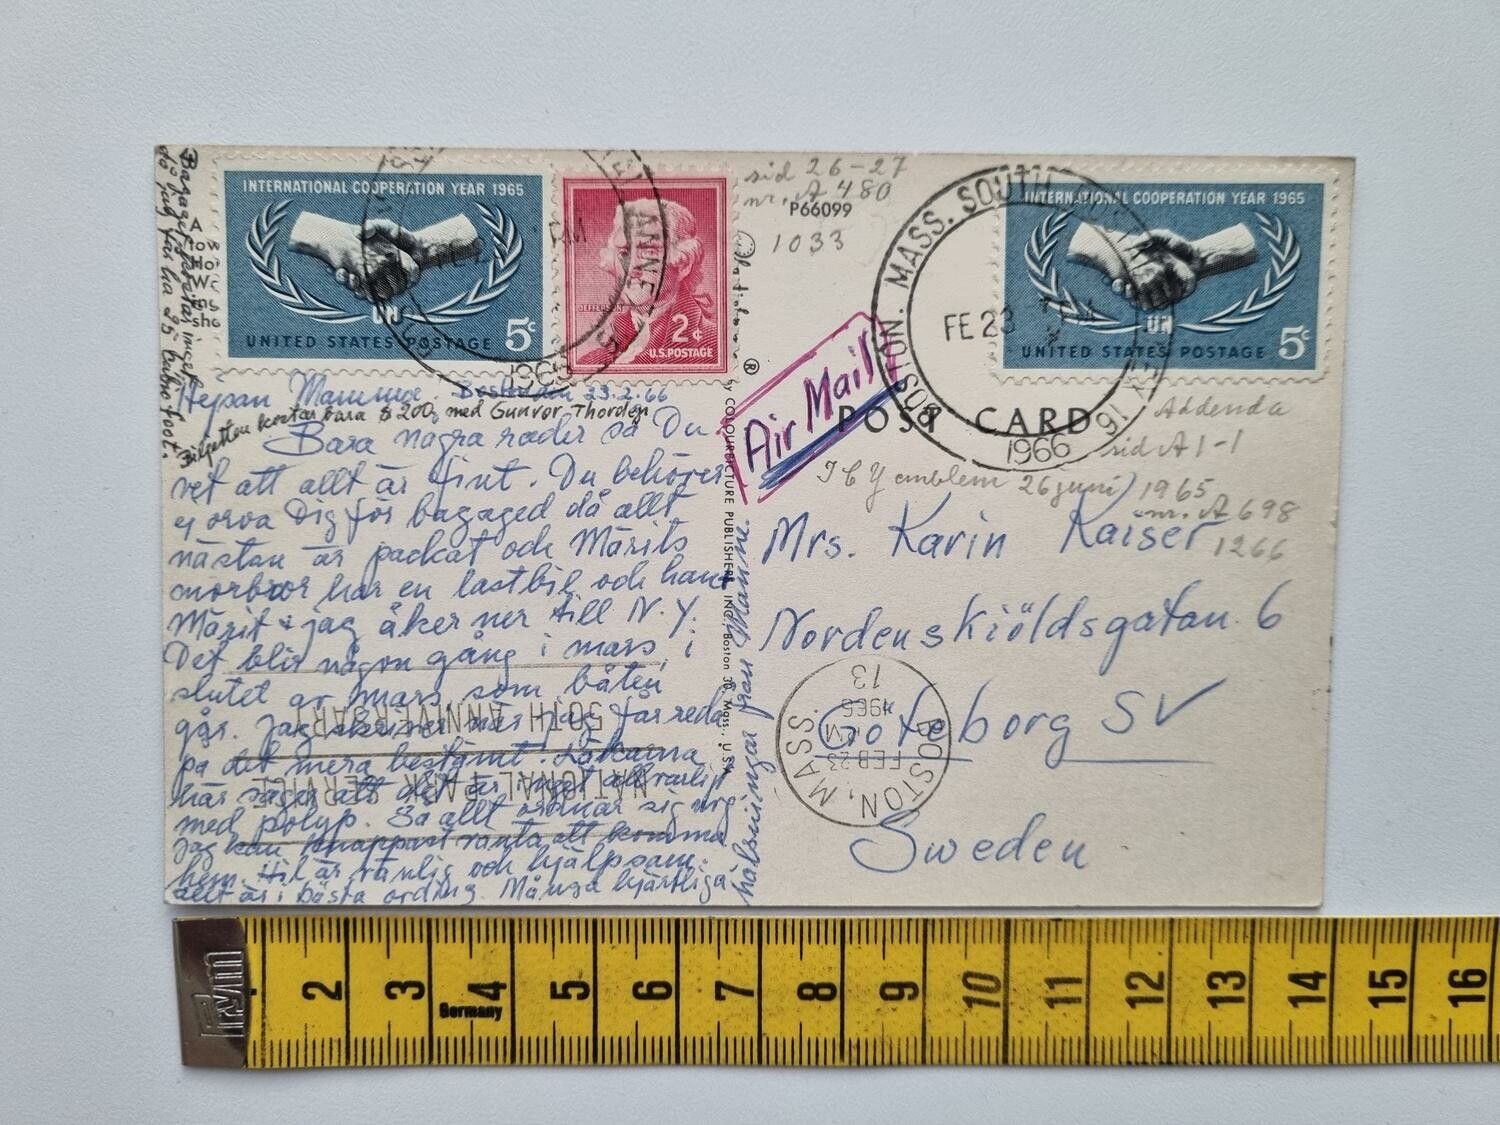 INTERNATIONAL COOPERATION YEAR 1965
UN
UNITED STATES POSTAGE 5¢
JEFFERSON
2¢
U.S. POSTAGE
ANNEX 16
1966
PM
sid 26-27
nr. A 480
P66099
1033
INTERNATIONAL COOPERATION YEAR 1965
UN
UNITED STATES POSTAGE 5¢
BOSTON. MASS. SOUTH
FE 23
1966
Air Mail
POST CARD
Addenda
sid A 1-1
ICY emblem 26 juni 1965
nr. A 698
1266
får jag ha 25 cubic foot.
Biljetten kostar bara $ 200, med Gunvor Thordén
Hejsan Mamma. Boston den 23.2.66
Bara några rader så Du
vet att allt är fint. Du behöver
ej oroa Dig för bagaged då allt
nästan är packat och Märits
morbror har en lastbil och han
Märit & jag åker ner till N.Y.
Det blir någon gång i mars, i
slutet av mars som båten
går. Jag skriver när jag får reda
på det mera bestämt. Läkarna
här säga att det är inget allvarligt
med polyp. Så allt ordnar sig nog
Jag kan knappast vänta att komma
hem. är vänlig och hjälpsam.
allt är i bästa ordning. Många hjärtliga
hälsningar från
Mrs. Karin Kaiser
Nordenskiöldsgatan. 6
Göteborg SV
Sweden
BOSTON, MASS.
FEB 23
PM
1966
13
NATIONAL PARK SERVICE
50TH ANNIVERSARY
® by COLOURPICTURE PUBLISHERS, INC., Boston 30, Mass., U.S.A.
2 3 4 5 6 7 8 9 10 11 12 13 14 15 16
Germany